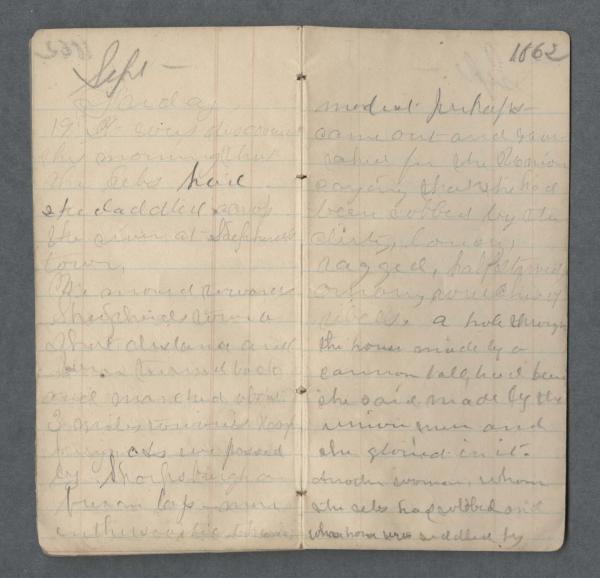 Sept -
19. It was discovered
this morning that
the rebs had
skedaddled across
the river at Shepherds
town.
We moved towards
Shepherdstown a
short distance and
then turned back
and marched about
3 miles
ferry. As we passed
by Sharpsburgh a
1862
modest perhaps -
came out and
for the Union
saying that she had
been robbed by the
dirty, lousy,
ragged, half starved
rebels. A hole through
the house made by a
cannon ball, had been
she said made by the
union men and
she gloried in it.
Another woman, whom
the rebs had robbed and
whose house was riddled by